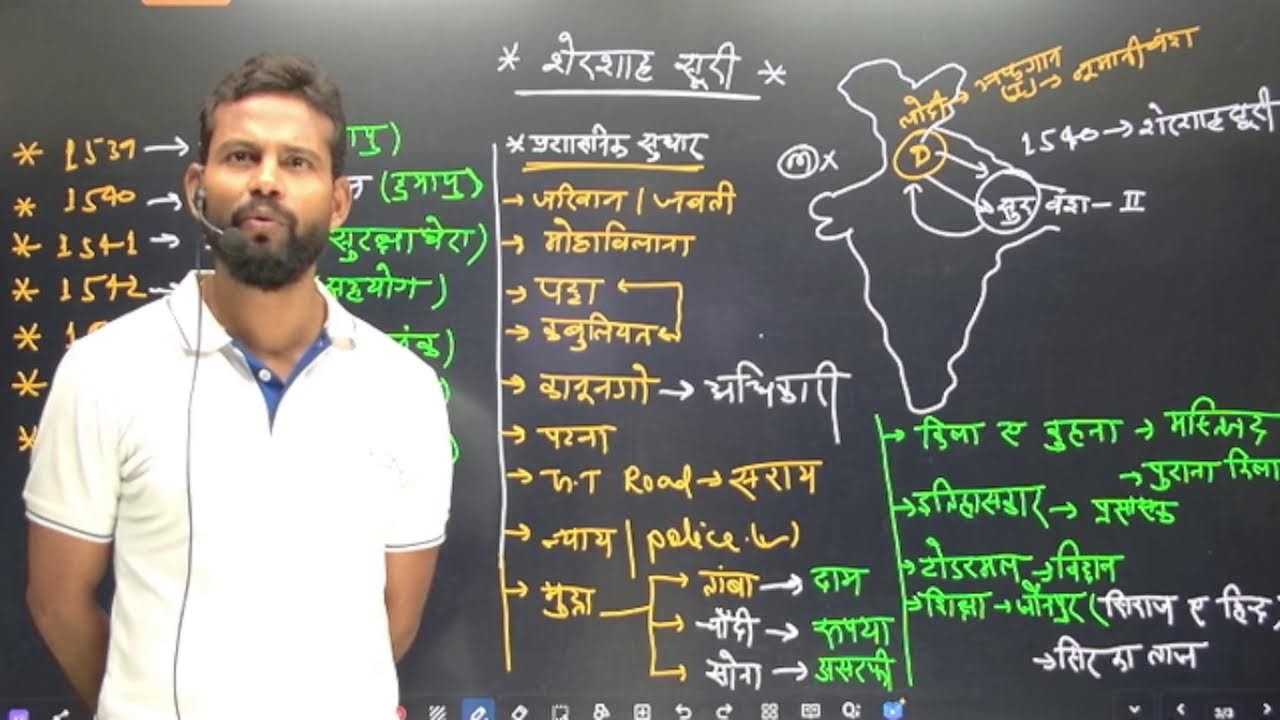 * शेरशाह सूरी *
* 1539 →
पु)
* 1540 →
(हुमायु)
* 1541 →
सुरक्षा घेरा)
* 1542 →
सहयोग)
*
*
*
* प्रशासनिक सुधार
→ जरिबाना / जबती
→ मोहाविलाना
→ पट्टा
→ कबुलियत
→ कानूनगो → अधिकारी
→ पटना
→ G.T Road → सराय
→ न्याय / police
→ मुद्रा
→ तांबा → दाम
→ चाँदी → रूपया
→ सोना → असरफी
लोदी → अफगान
(I) →
वंश
1540 → शेरशाह सूरी
(M) x
D
सुर वंश - II
→ किला ए कुहना → मस्जिद
→ पुराना किला
→ इतिहासकार → प्रसासक
→ टोडरमल → विद्वान
→ शिक्षा → जौनपुर (सिराज ए हिन्द)
→ सिर का ताज
3/3